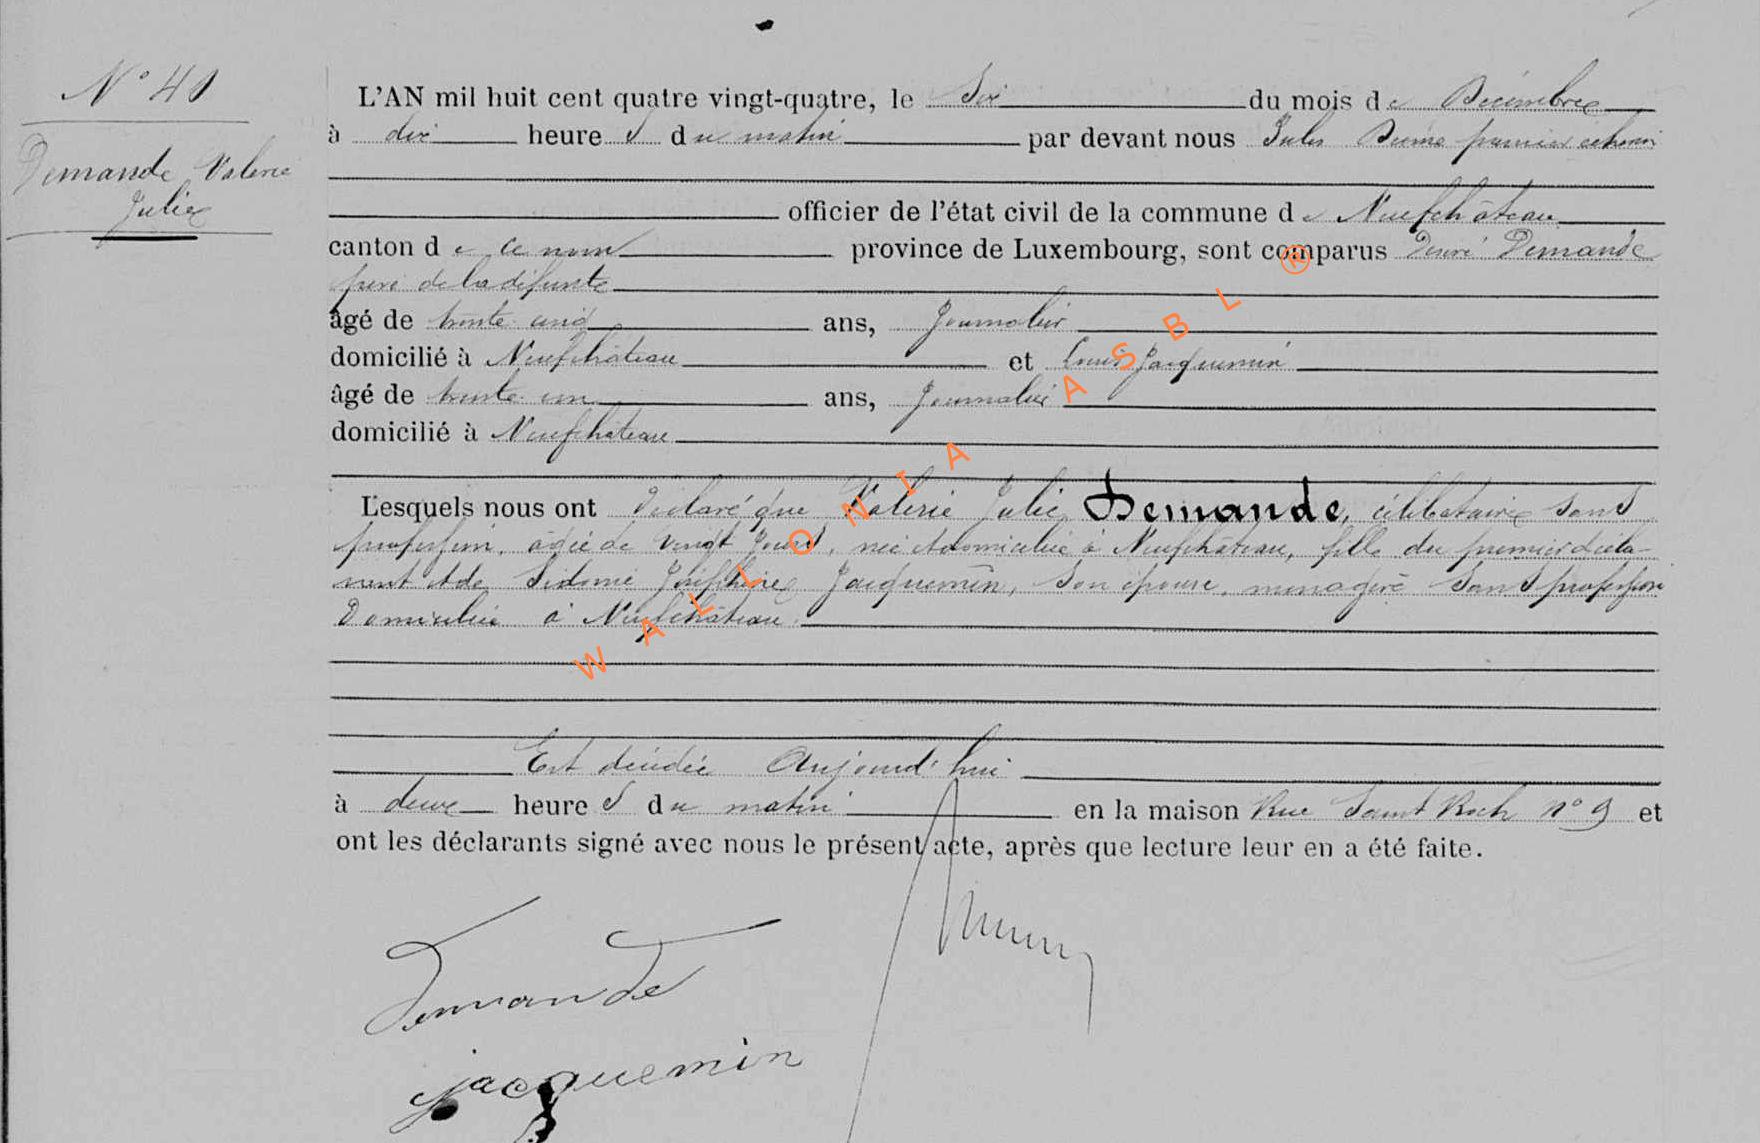 N° 40
Demande Valerie
Julie
L'AN mil huit cent quatre vingt-quatre, le Six du mois de Décembre
à dix heures du matin par devant nous Jules premier échevin
officier de l'état civil de la commune de Neufchâteau
canton de ce nom province de Luxembourg, sont comparus Désiré Demande
père de la défunte
âgé de trente cinq ans, Journalier
domicilié à Neufchâteau et Louis Jacquemin
âgé de trente un ans, Journalier
domicilié à Neufchâteau
Lesquels nous ont déclaré que Valerie Julie Demande, célibataire sans
profession, âgée de vingt jours, née et domiciliée à Neufchâteau, fille du premier décla-
rant et de Sidonie Joséphine Jacquemin, son épouse, menagère sans profession
Domiciliée à Neufchâteau.
Est décédée Aujourd'hui
à deux heures du matin en la maison Rue Saint Roch n° 9 et
ont les déclarants signé avec nous le présent acte, après que lecture leur en a été faite.
Demande
jacquemin
WALLONIA ASBL ®